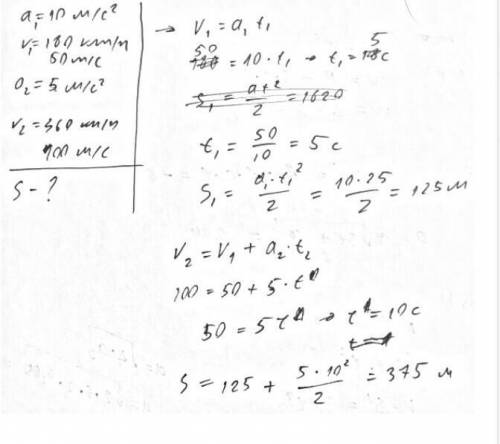 a₁=10 м/с²
v₁=180 км/ч
50 м/с
a₂=5 м/с²
v₂=360 км/ч
100 м/с
S-?
→ V₁ = a₁ t₁
50 = 10·t₁ → t₁ = 5 с
S₁ = at²/2 = 1620
t₁ = 50/10 = 5 с
S₁ = a₁·t₁²/2 = 10·25/2 = 125 м
V₂ = V₁ + a₂·t₂
100 = 50 + 5·t
50 = 5t → t = 10 с
S = 125 + 5·10²/2 = 375 м